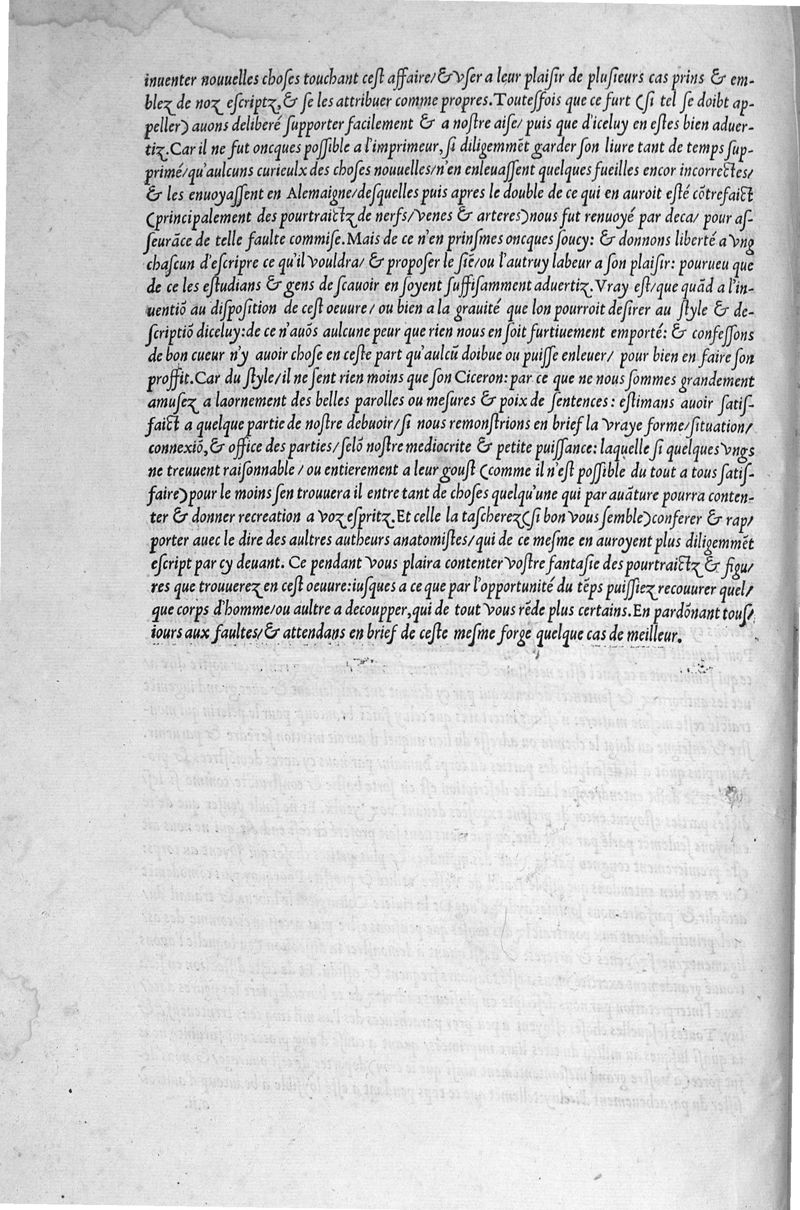 inuenter nouuelles choses touchant cest affaire/& vser a leur plaisir de plusieurs cas prins & em-
blez de noz escriptz,& se les attribuer comme propres.Toutesfois que ce furt (si tel se doibt ap-
peller) auons deliberé supporter facilement & a nostre aise/ puis que d'iceluy en estes bien aduer-
tiz.Car il ne fut oncques possible a l'imprimeur,si diligemmēt garder son liure tant de temps sup-
primé/qu'aulcuns curieulx des choses nouuelles/n'en enleuassent quelques fueilles encor incorrectes/
& les enuoyassent en Alemaigne/desquelles puis apres le double de ce qui en auroit esté cōtrefaict
(principalement des pourtraictz de nerfs/venes & arteres)nous fut renuoyé par deca/ pour as-
seurāce de telle faulte commise.Mais de ce n'en prinsmes oncques soucy: & donnons liberté a vng
chascun d'escripre ce qu'il vouldra/ & proposer le siē/ou l'autruy labeur a son plaisir: pourueu que
de ce les estudians & gens de scauoir en soyent suffisamment aduertiz.Vray est/que quād a l'in-
uentiō au disposition de cest oeuure/ ou bien a la grauité que lon pourroit desirer au style & de-
scriptiō diceluy:de ce n'auōs aulcune peur que rien nous en soit furtiuement emporté: & confessons
de bon cueur n'y auoir chose en ceste part qu'aulcū doibue ou puisse enleuer/ pour bien en faire son
proffit.Car du style/il ne sent rien moins que son Ciceron: par ce que ne nous sommes grandement
amusez a laornement des belles parolles ou mesures & poix de sentences: estimans auoir satis-
faict a quelque partie de nostre debuoir/si nous remonstrions en brief la vraye forme/situation/
connexiō,& office des parties/selō nostre mediocrite & petite puissance: laquelle si quelques vngs
ne treuuent raisonnable / ou entierement a leur goust (comme il n'est possible du tout a tous satis-
faire)pour le moins sen trouuera il entre tant de choses quelqu'une qui par auāture pourra conten-
ter & donner recreation a voz espritz.Et celle la tascherez(si bon vous semble)conferer & rap/
porter auec le dire des aultres autheurs anatomistes/qui de ce mesme en auroyent plus diligemmēt
escript par cy deuant. Ce pendant vous plaira contenter vostre fantasie des pourtraictz & figu/
res que trouuerez en cest oeuure:iusques a ce que par l'opportunité du tēps puissiez recouurer quel/
que corps d'homme/ou aultre a decoupper,qui de tout vous rēde plus certains.En pardōnant tous/
iours aux faultes/& attendans en brief de ceste mesme forge quelque cas de meilleur.